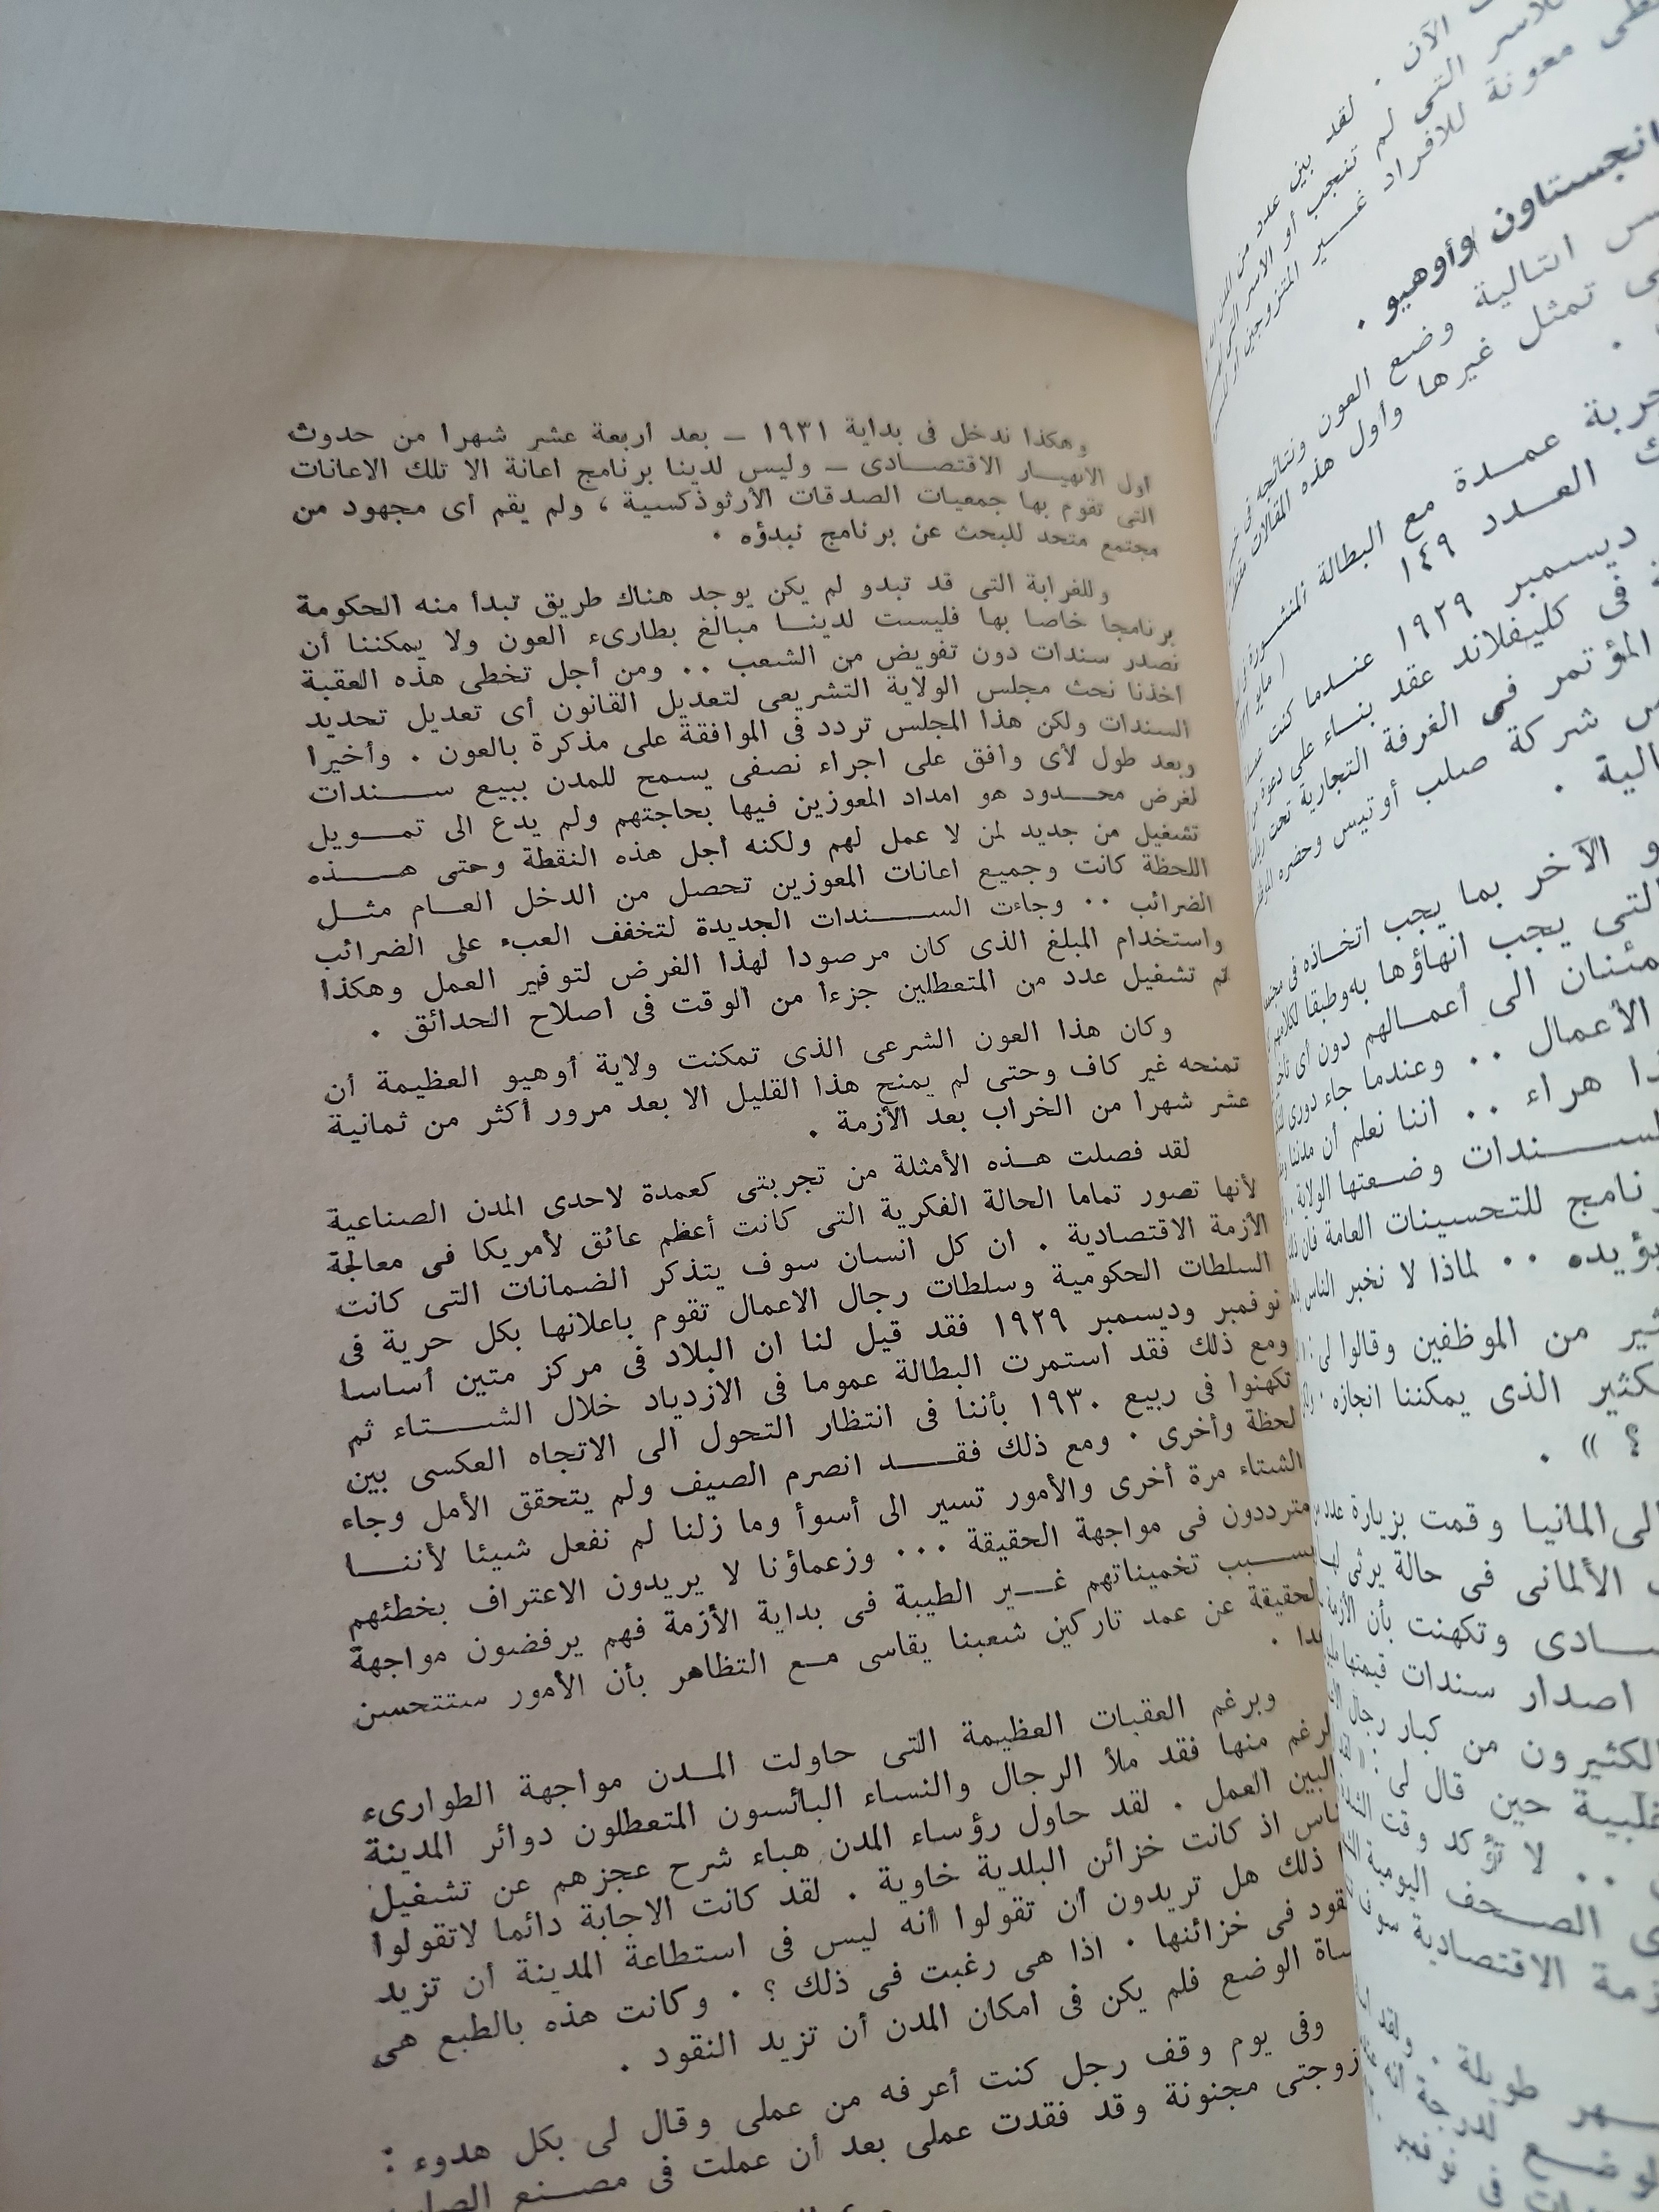 وهكذا ندخل فى بداية ١٩٣١ ـ بعد اربعة عشر شهرا من حدوث
اول الانهيار الاقتصادى ـ وليس لدينا برنامج اعانة الا تلك الاعانات
التى تقوم بها جمعيات الصدقات الأرثوذكسية ، ولم يقم أى مجهود من
مجتمع متحد للبحث عن برنامج نبدؤه .
وللغرابة التى قد تبدو لم يكن يوجد هناك طريق تبدأ منه الحكومة
برنامجا خاصا بها فليست لدينا مبالغ بطارىء العون ولا يمكننا أن
نصدر سندات دون تفويض من الشعب .. ومن أجل تخطى هذه العقبة
اخذنا نحث مجلس الولاية التشريعى لتعديل القانون أى تعديل تحديد
السندات ولكن هذا المجلس تردد فى الموافقة على مذكرة بالعون . وأخيرا
وبعد طول لأى وافق على اجراء نصفى يسمح للمدن ببيع سندات
لغرض محدود هو امداد المعوزين فيها بحاجتهم ولم يدع الى تمويل
تشغيل من جديد لمن لا عمل لهم ولكنه أجل هذه النقطة وحتى هذه
اللحظة كانت وجميع اعانات المعوزين تحصل من الدخل العام مثل
الضرائب .. وجاءت السندات الجديدة لتخفف العبء على الضرائب
واستخدام المبلغ الذى كان مرصودا لهذا الغرض لتوفير العمل وهكذا
تم تشغيل عدد من المتعطلين جزءا من الوقت فى اصلاح الحدائق .
وكان هذا العون الشرعى الذى تمكنت ولاية أوهيو العظيمة أن
تمنحه غير كاف وحتى لم يمنح هذا القليل الا بعد مرور أكثر من ثمانية
عشر شهرا من الخراب بعد الأزمة .
لقد فصلت هذه الأمثلة من تجربتى كعمدة لاحدى المدن الصناعية
لأنها تصور تماما الحالة الفكرية التى كانت أعظم عائق لأمريكا فى معالجة
الأزمة الاقتصادية . ان كل انسان سوف يتذكر الضمانات التى كانت
السلطات الحكومية وسلطات رجال الاعمال تقوم باعلانها بكل حرية فى
نوفمبر وديسمبر ١٩٢٩ فقد قيل لنا ان البلاد فى مركز متين أساسا
ومع ذلك فقد استمرت البطالة عموما فى الازدياد خلال الشتاء ثم
تكهنوا فى ربيع ١٩٣٠ بأننا فى انتظار التحول الى الاتجاه العكسى بين
لحظة وأخرى . ومع ذلك فقد انصرم الصيف ولم يتحقق الأمل وجاء
الشتاء مرة أخرى والأمور تسير الى أسوأ وما زلنا لم نفعل شيئا لأننا
مترددون فى مواجهة الحقيقة ... وزعماؤنا لا يريدون الاعتراف بخطئهم
بسبب تخميناتهم غير الطيبة فى بداية الأزمة فهم يرفضون مواجهة
الحقيقة عن عمد تاركين شعبنا يقاسى مع التظاهر بأن الأمور ستتحسن
وبرغم العقبات العظيمة التى حاولت المدن مواجهة الطوارىء
منها فقد ملأ الرجال والنساء البائسون المتعطلون دوائر المدينة
العمل . لقد حاول رؤساء المدن هباء شرح عجزهم عن تشغيل
اذ كانت خزائن البلدية خاوية . لقد كانت الاجابة دائما لاتقولوا
ذلك هل تريدون أن تقولوا أنه ليس فى استطاعة المدينة أن تزيد
فى خزائنها . اذا هى رغبت فى ذلك ؟ . وكانت هذه بالطبع هى
الوضع فلم يكن فى امكان المدن أن تزيد النقود .
وفى يوم وقف رجل كنت أعرفه من عملى وقال لى بكل هدوء :
زوجتى مجنونة وقد فقدت عملى بعد أن عملت فى مصنع
الآن . لقد بين عدد من
التى لم تنجب أو الاسر التى
معونة للافراد غير المتزوجين
وأوهيو .
التالية وضع العون ونتائجه فى
تمثل غيرها وأول هذه المقالات
عمدة مع البطالة المنشورة فى
العدد ١٤٩
ديسمبر ١٩٢٩ عندما كنت
فى كليفلاند عقد بناء على دعوة من
المؤتمر فى الغرفة التجارية تحت
شركة صلب أوتيس وحضره
الآخر بما يجب اتخاذه فى
التى يجب انهاؤها به وطبقا
الى أعمالهم دون أى
الأعمال .. وعندما جاء دورى
هراء .. اننا نعلم أن مدننا
وضعتها الولاية
للتحسينات العامة فان
يؤيده .. لماذا لا نخبر الناس
من الموظفين وقالوا لى :
الذى يمكننا انجازه .
؟ » .
المانيا وقمت بزيارة عدد
الألمانى فى حالة يرثى لها
وتكهنت بأن الأزمة
اصدار سندات قيمتها
الكثيرون من كبار رجال
حين قال لى : «
.. لا تؤكد وقت
الصحف اليومية
الاقتصادية سوف
طويلة . ولقد
لدرجة أنه